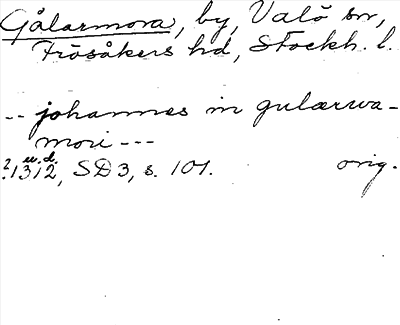 Gålarmora, by, Valö sn,
Frösåkers hd, Stockh. l.
-- johannes in gulærwa-
mori ---
u.d.
?.1312, SD 3, s. 101. orig.